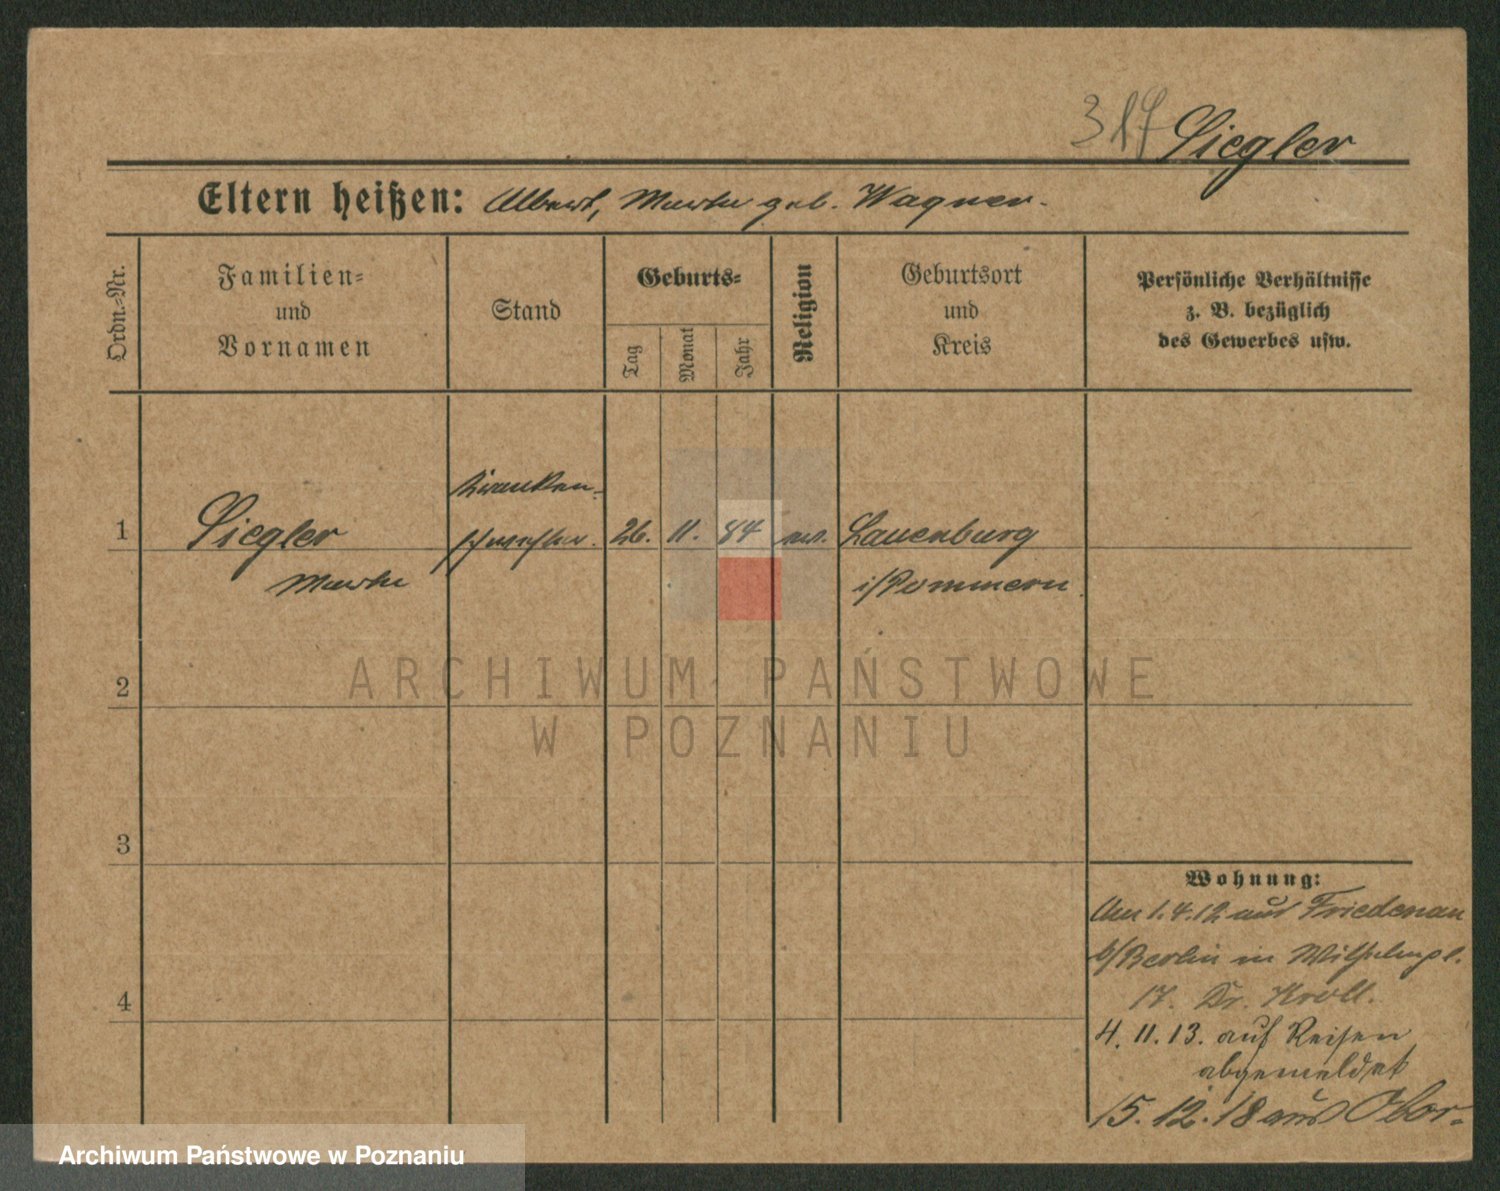 317 Siegler
Eltern heißen: Albert, Martha geb. Wagner.
Ordn.-Nr.
Familien-
und
Vornamen
Stand
Geburts-
Tag
Monat
Jahr
Religion
Geburtsort
und
Kreis
Persönliche Verhältnisse
z. B. bezüglich
des Gewerbes usw.
Kranken-
1 Siegler schwester. 26. 11. 84 ev. Lauenburg
Martha i/Pommern
ARCHIWUM PAŃSTWOWE
2
W POZNANIU
3
Wohnung:
Am 1.4.12 aus Friedenau
b/Berlin in Wilhelmpl.
17. Dr. Kroll.
4
4. 11. 13. auf Reisen
abgemeldet
15. 12. 18 aus Obor-
Archiwum Państwowe w Poznaniu